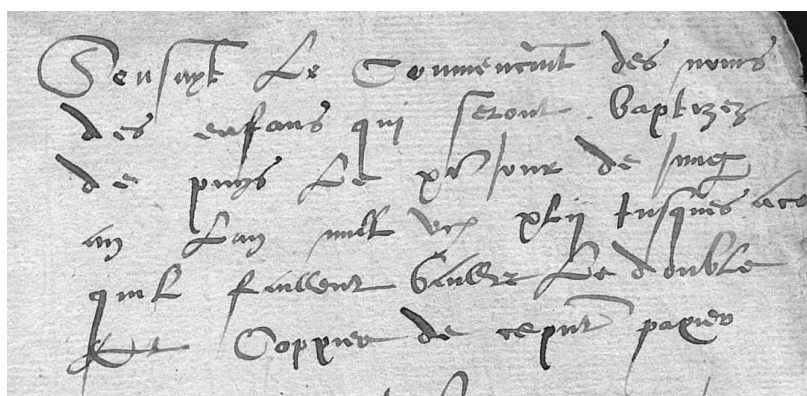 Sensuyt Le Commencemt des noms
des enfans qui seront baptizez
de puys Le xve Jour de Juing
an Lan mil vcc xlii Jusques ace
quil faillent bailler Le double
Et Coppier de ce pnt papier